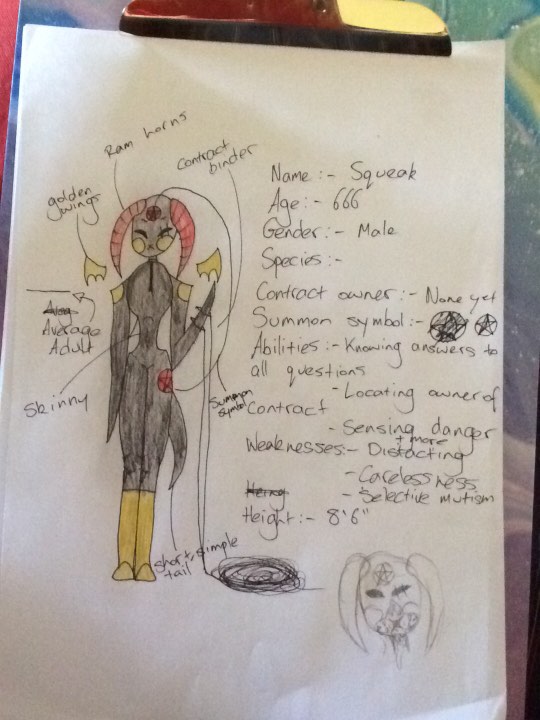 Ram horns
Contract
binder
golden
wings
Average
Adult
Skinny
Summon
symbol
short, simple
tail
Name:- Squeak
Age:- 666
Gender:- Male
Species:-
Contract owner:- None yet
Summon symbol:-
Abilities:- Knowing answers to
all questions
- Locating owner of
Contract
- Sensing danger
+ more
Weaknesses:- Distacting
- Carelessness
- Selective mutism
Height:- 8'6"